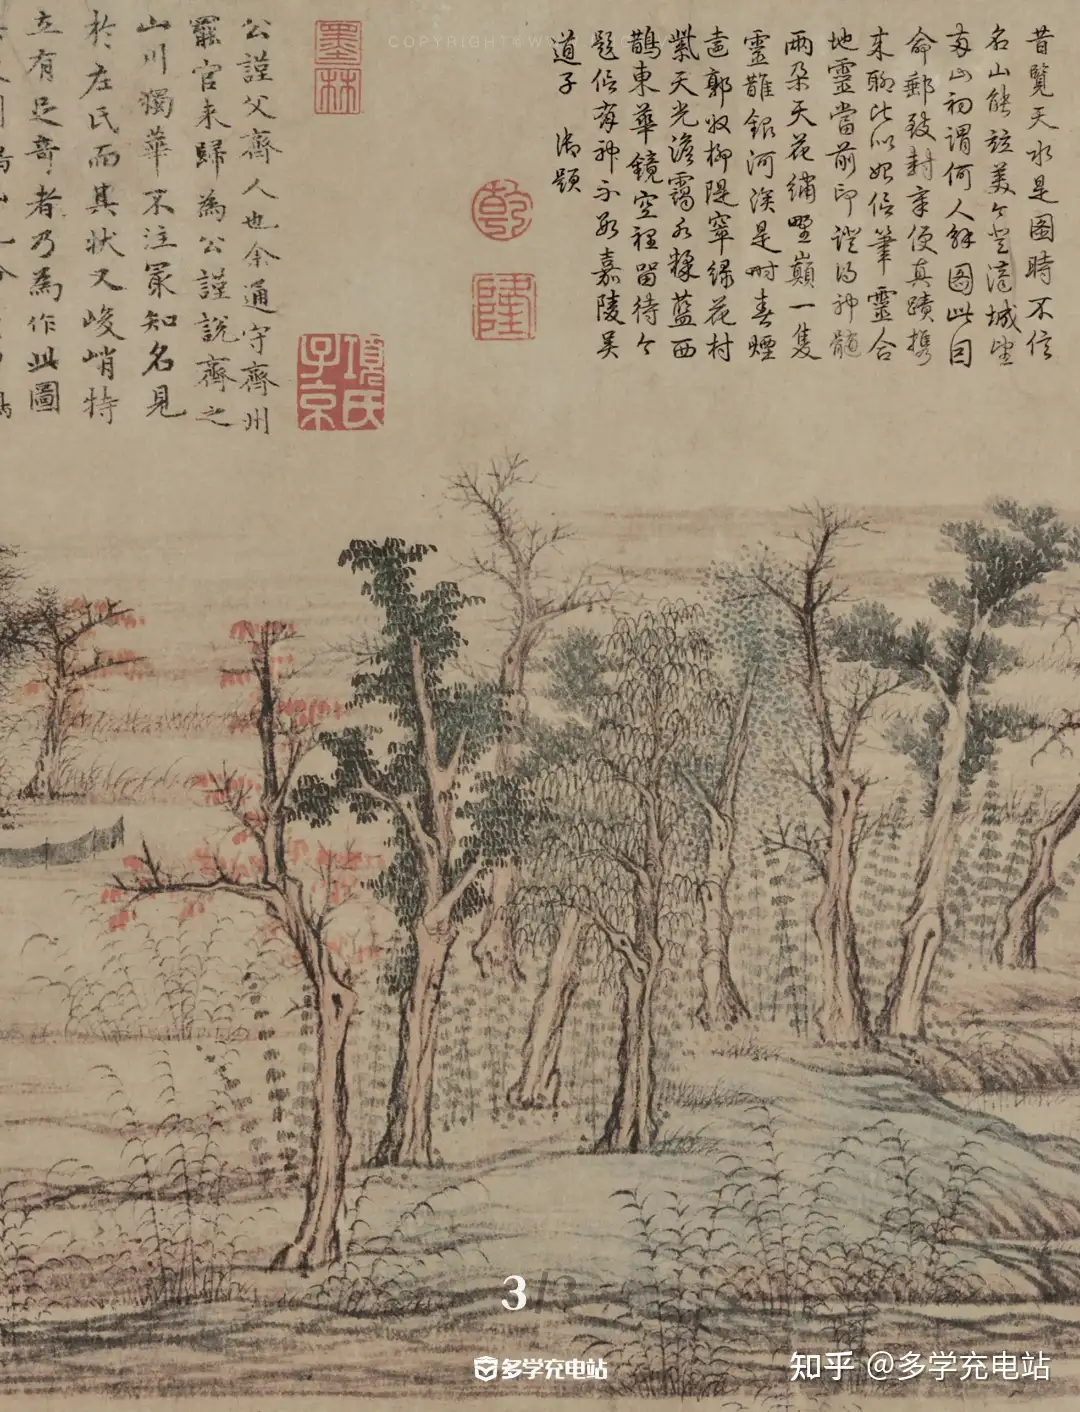 昔覽天水是圖時不信
名山能美今登濟城望
兩山初謂何人解圖此因
命郵致封章便真蹟攜
來聊比似始信筆靈合
地靈當前印證得神髓
兩朵天花繡野巔一隻
靈鵲銀河涘是時春煙
遠郭收柳隄窣綠花村
紫天光澹靄水揉藍西
鵲東華鏡空裡留待今
題信有神不數嘉陵吳
道子 御題
乾
隆
墨林
項氏子京
公謹父齊人也余通守齊州
罷官來歸為公謹說齊之
山川獨華不注冣知名見
於左氏而其狀又峻峭特
立有足奇者乃為作此圖
COPYRIGHT©
3/3
多学充电站
知乎 @多学充电站